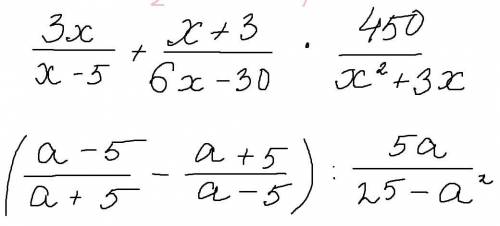 3x/(x-5) + (x+3)/(6x-30) · 450/(x²+3x)
((a-5)/(a+5) - (a+5)/(a-5)) : 5a/(25-a²)